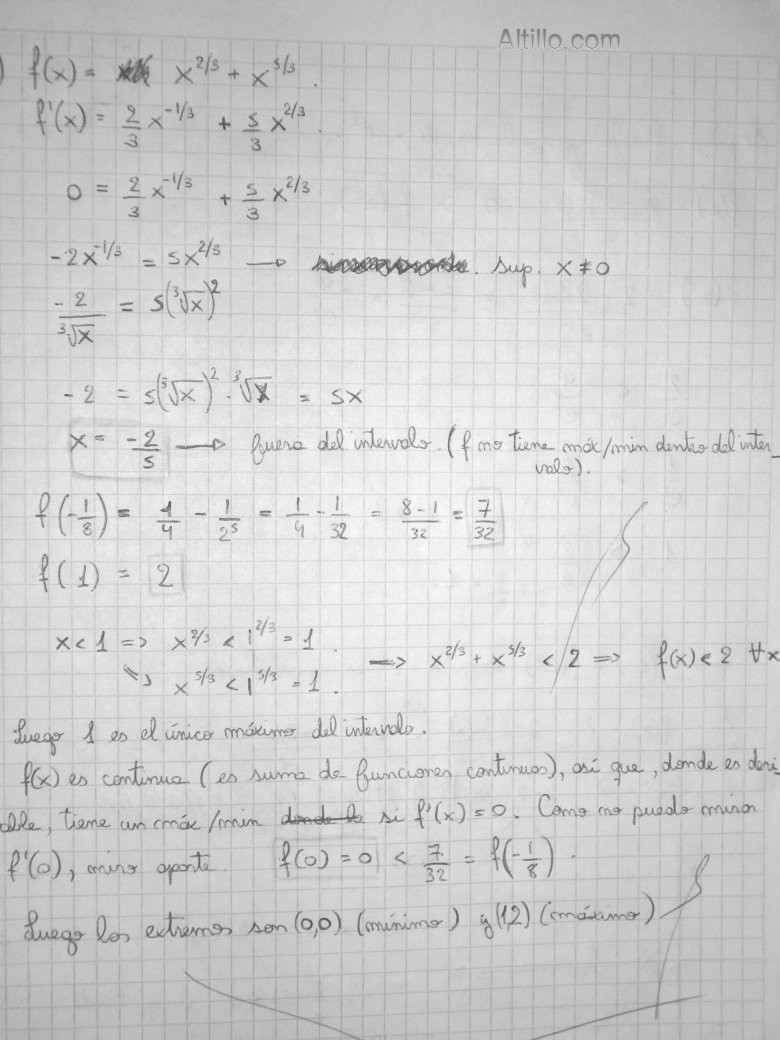 Altillo.com
) f(x) = x^{2/3} + x^{5/3}.
f'(x) = 2/3 x^{-1/3} + 5/3 x^{2/3}.
0 = 2/3 x^{-1/3} + 5/3 x^{2/3}
-2x^{-1/3} = 5x^{2/3} → . Sup. x ≠ 0
-2/∛x = 5(∛x)^2
-2 = 5(∛x)^2 · ∛x = 5x
x = -2/5 → fuera del intervalo. (f no tiene máx/min dentro del inter-
valo).
f(-1/8) = 1/4 - 1/2^5 = 1/4 - 1/32 = 8-1/32 = 7/32
f(1) = 2
x < 1 => x^{2/3} < 1^{2/3} = 1.
=> x^{5/3} < 1^{5/3} = 1. => x^{2/3} + x^{5/3} < 2 => f(x) < 2 ∀x
Luego 1 es el único máximo del intervalo.
f(x) es continua (es suma de funciones continuas), así que, donde es deri-
able, tiene un máx/min donde lo si f'(x) = 0. Como no puedo mirar
f'(0), miro aparte. f(0) = 0 < 7/32 = f(-1/8).
Luego los extremos son (0,0) (mínimo) y (1,2) (máximo)